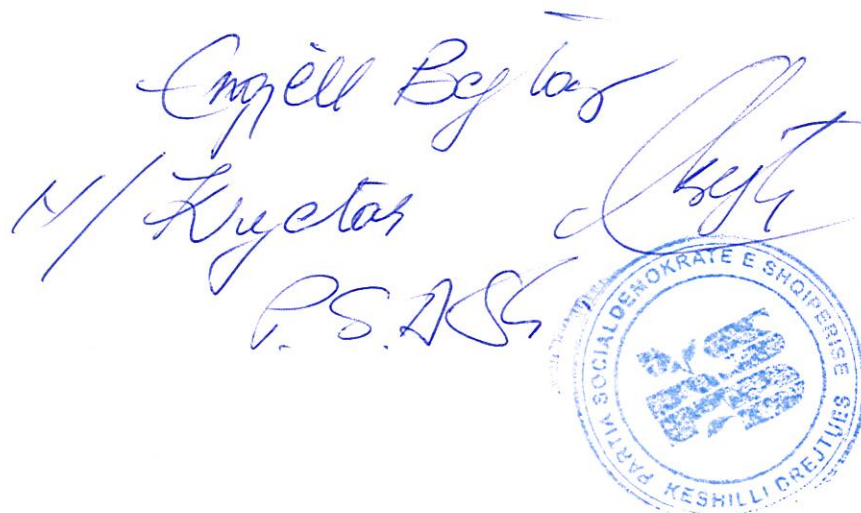 Engjëll Bejtaj
N/Kryetar
P.S.D.SH
PARTIA SOCIALDENOKRATE E SHQIPERISE
KESHILLI DREJTUES